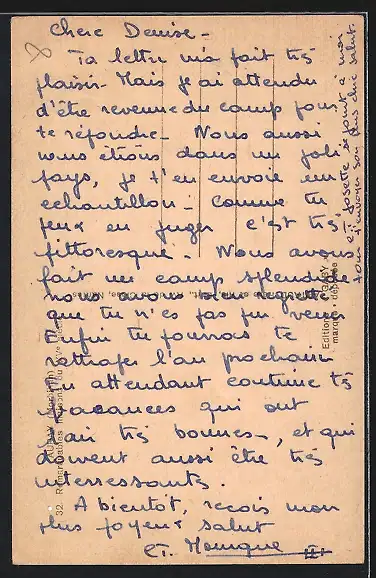 Chère Denise -
Ta lettre m'a fait très
plaisir. Mais j'ai attendu
d'être revenue du camp pour
te répondre - Nous aussi
nous étions dans un joli
pays, je t'en envoie un
echantillon - comme tu
peux en juger c'est très
pittoresque. - Nous avons
fait un camp splendide
nous avons bien regretté
que tu n'es pas pu venir
Enfin tu pourras te
rattraper l'an prochain
En attendant continue tes
vacances qui ont
l'air très bonnes -, et qui
doivent aussi être très
interressantes.
A bientôt, reçois mon
plus joyeux salut
CT. Monique
CT. Josette se joint à moi
pour t'envoyer son plus chic salut.
32.
Editions
marque déposée